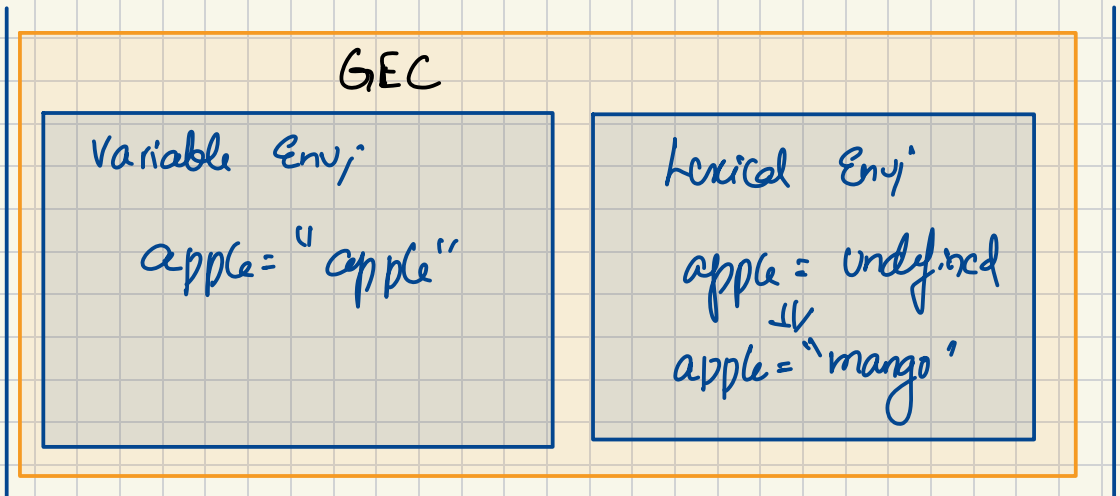 GEC
Variable Env;
apple = "apple"
Lexical Env;
apple = undefined
apple = "mango"